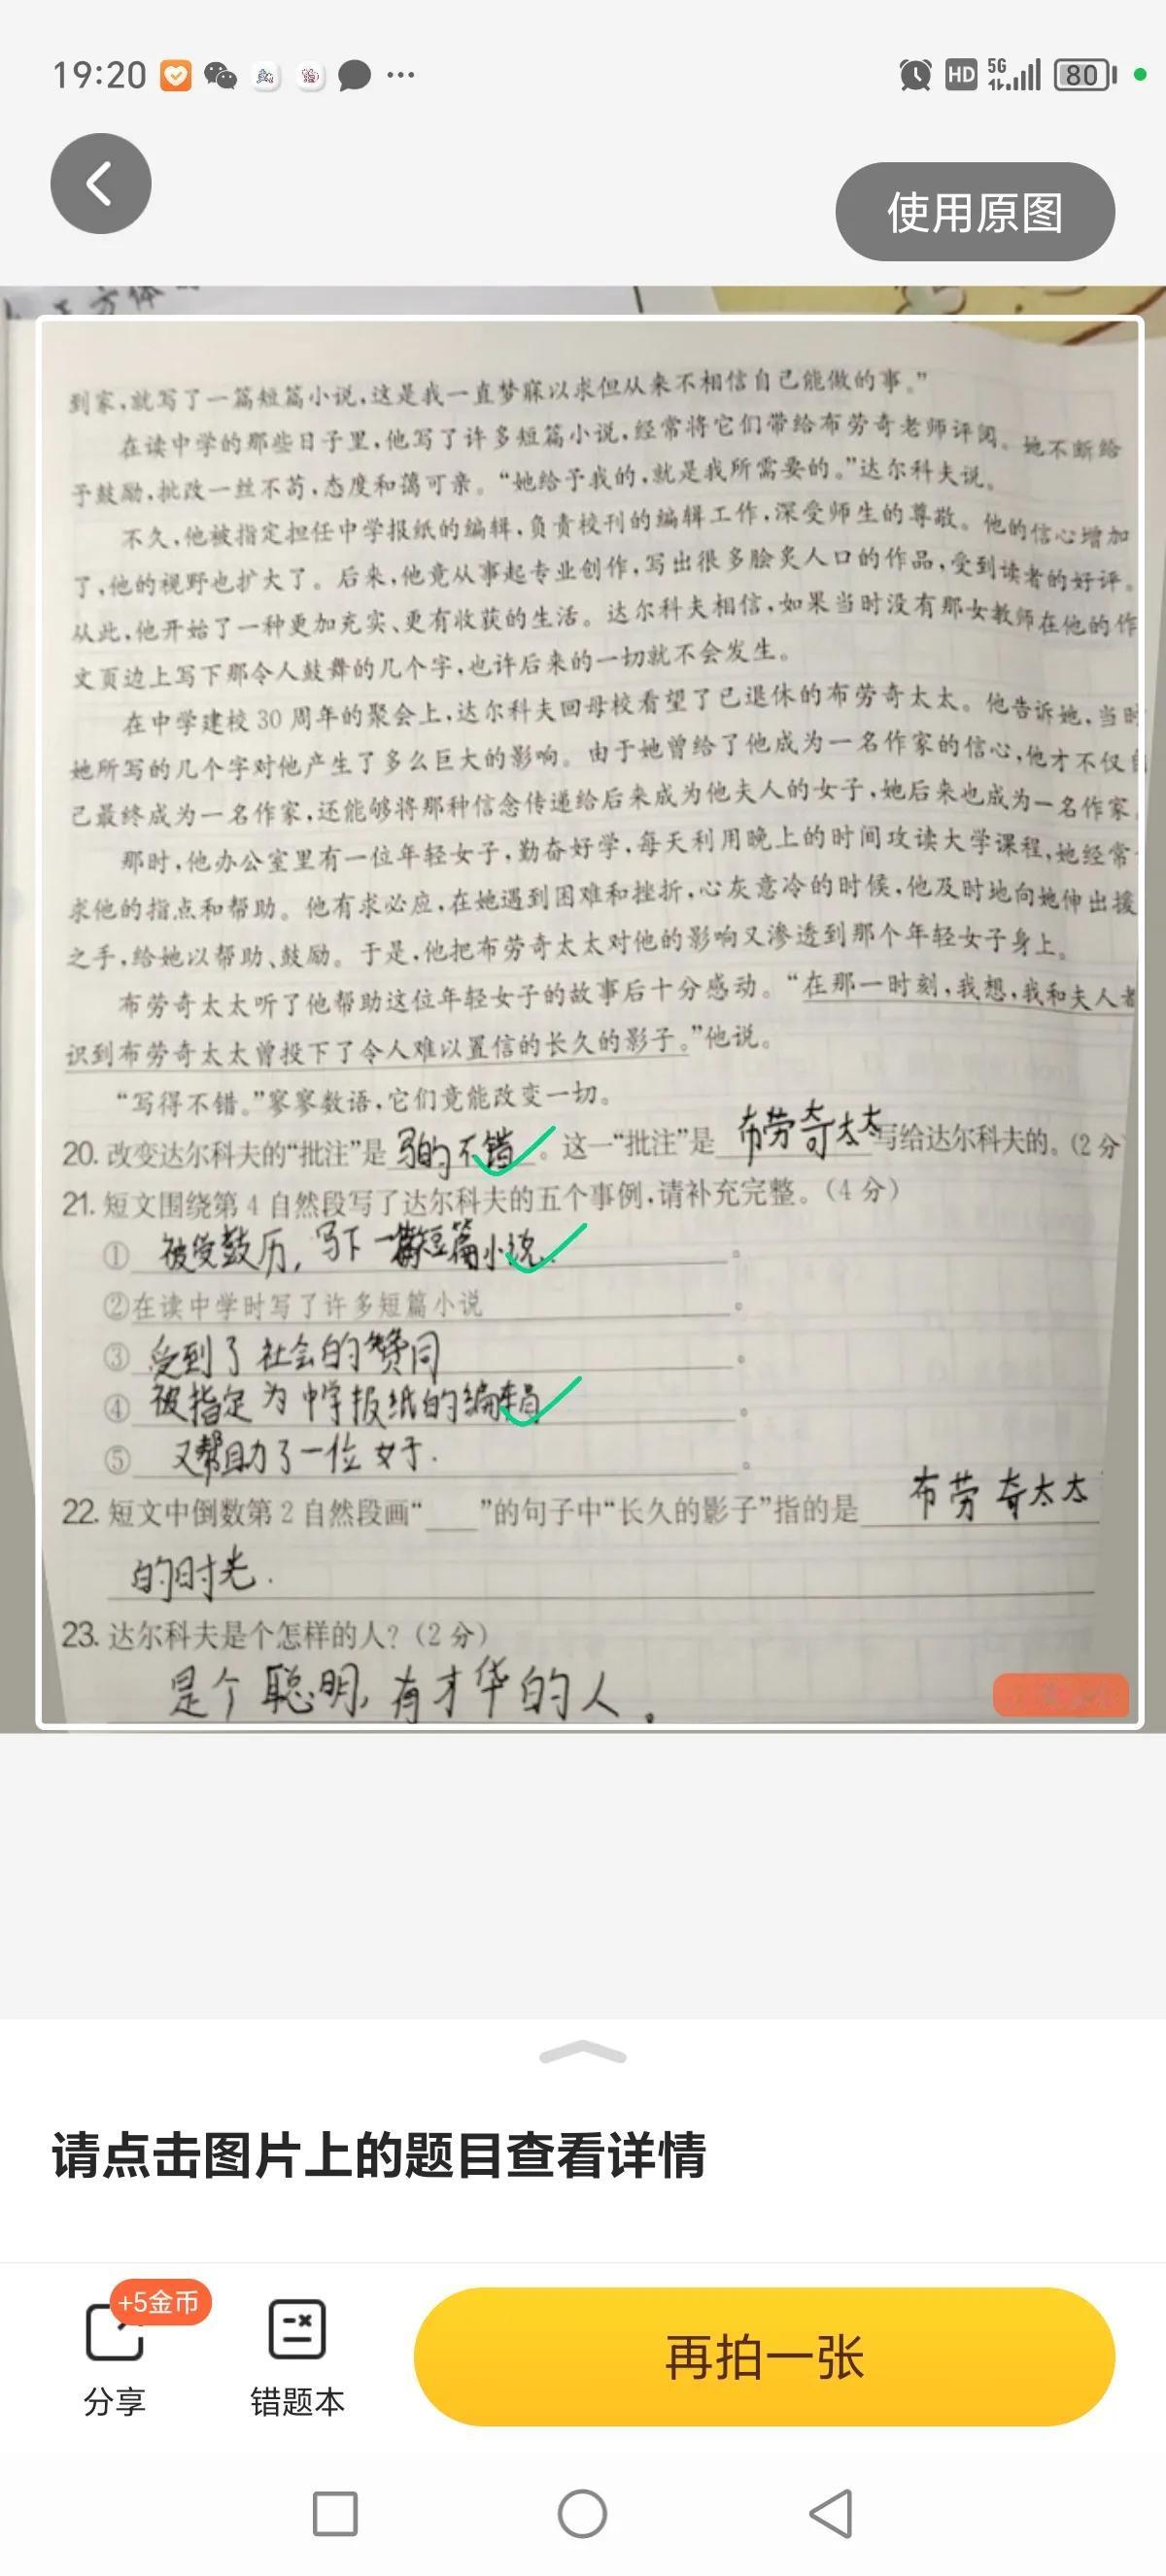 19:20
HD
5G
80
使用原图
正方体
到家,就写了一篇短篇小说,这是我一直梦寐以求但从来不相信自己能做的事。”
在读中学的那些日子里,他写了许多短篇小说,经常将它们带给布劳奇老师评阅。她不断给
予鼓励,批改一丝不苟,态度和蔼可亲。“她给予我的,就是我所需要的。”达尔科夫说。
不久,他被指定担任中学报纸的编辑,负责校刊的编辑工作,深受师生的尊敬。他的信心增加
了,他的视野也扩大了。后来,他竟从事起专业创作,写出很多脍炙人口的作品,受到读者的好评。
从此,他开始了一种更加充实、更有收获的生活。达尔科夫相信,如果当时没有那女教师在他的作
文页边上写下那令人鼓舞的几个字,也许后来的一切就不会发生。
在中学建校30周年的聚会上,达尔科夫回母校看望了已退休的布劳奇太太。他告诉她,当时
她所写的几个字对他产生了多么巨大的影响。由于她曾给了他成为一名作家的信心,他才不仅自
己最终成为一名作家,还能够将那种信念传递给后来成为他夫人的女子,她后来也成为一名作家。
那时,他办公室里有一位年轻女子,勤奋好学,每天利用晚上的时间攻读大学课程,她经常
求他的指点和帮助。他有求必应,在她遇到困难和挫折,心灰意冷的时候,他及时地向她伸出援
之手,给她以帮助、鼓励。于是,他把布劳奇太太对他的影响又渗透到那个年轻女子身上。
布劳奇太太听了他帮助这位年轻女子的故事后十分感动。“在那一时刻,我想,我和夫人都
识到布劳奇太太曾投下了令人难以置信的长久的影子。”他说。
“写得不错。”寥寥数语,它们竟能改变一切。
20. 改变达尔科夫的“批注”是 写的不错 。这一“批注”是 布劳奇太太 写给达尔科夫的。(2分
21. 短文围绕第4自然段写了达尔科夫的五个事例,请补充完整。(4分)
① 被受鼓历,写下一篇短篇小说. 。
②在读中学时写了许多短篇小说 。
③ 受到了社会的赞同 。
④ 被指定为中学报纸的编辑 。
⑤ 又帮助了一位女子. 。
22. 短文中倒数第2自然段画“___”的句子中“长久的影子”指的是 布劳奇太太
的时光.
23. 达尔科夫是个怎样的人?(2分)
是个聪明,有才华的人。
请点击图片上的题目查看详情
+5金币
分享
错题本
再拍一张